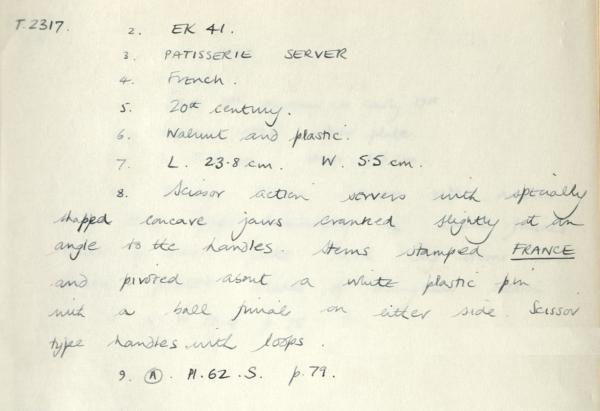 T.2317. 2. EK 41.
3. PATISSERIE SERVER
4. French.
5. 20th century.
6. Walnut and plastic.
7. L. 23.8 cm. W. 5.5 cm.
8. Scissor action servers with specially
shaped concave jaws cranked slightly at an
angle to the handles. Stems stamped FRANCE
and pivoted about a white plastic pin
with a ball finial on either side. Scissor
type handles with loops.
9. A. Pl. 62. S. p. 79.